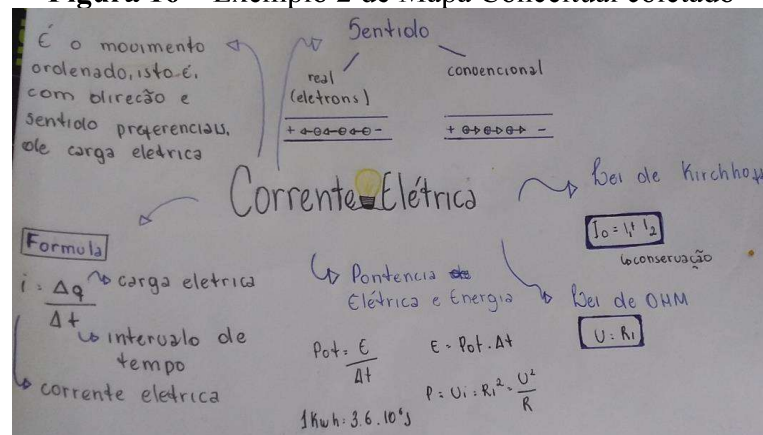 Figura 10 – Exemplo 2 de Mapa Conceitual coletado
É o movimento
ordenado, isto é,
com direcão e
sentido preferenciais,
de carga eletrica
Sentido
real
(eletrons)
+ -
convencional
+ -
Corrente Elétrica
Formula
i = Δq
Δt
carga eletrica
intervalo de
tempo
corrente eletrica
Pontencia
Elétrica e Energia
Pot = E
Δt
E = Pot. Δt
P = Ui = Ri² = U²
R
1Kwh = 3,6.10⁶J
Lei de Kirchhoff
I₀ = I₁ + I₂
conservação
Lei de OHM
U = Ri